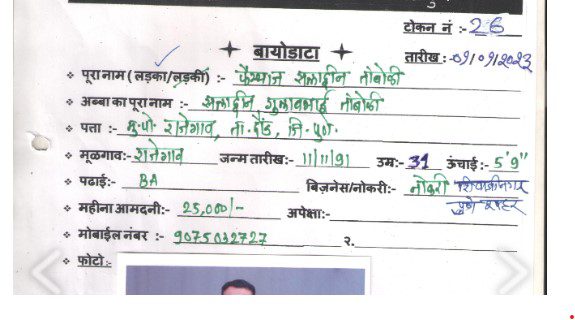 टोकन नं :- 26
बायोडाटा
तारीख :- 09/09/2023
पूरा नाम (लड़का/लड़की) :- फैय्याज सलाद्दीन तांबोळी
अब्बा का पूरा नाम :- सलाद्दीन गुलाबभाई तांबोळी
पत्ता :- मु.पो. राजेगाव, ता. दौंड, जि. पुणे.
मूळगाव:- राजेगाव जन्म तारीख:- 11/11/91 उम्र:- 31 ऊंचाई :- 5'9"
पढाई :- BA बिज़नेस/नोकरी:- नोकरी शिवाजीनगर
पुणे शहर
महीना आमदनी:- 25,000/- अपेक्षा:-
मोबाईल नंबर :- 9075032727 २.
फोटो:-